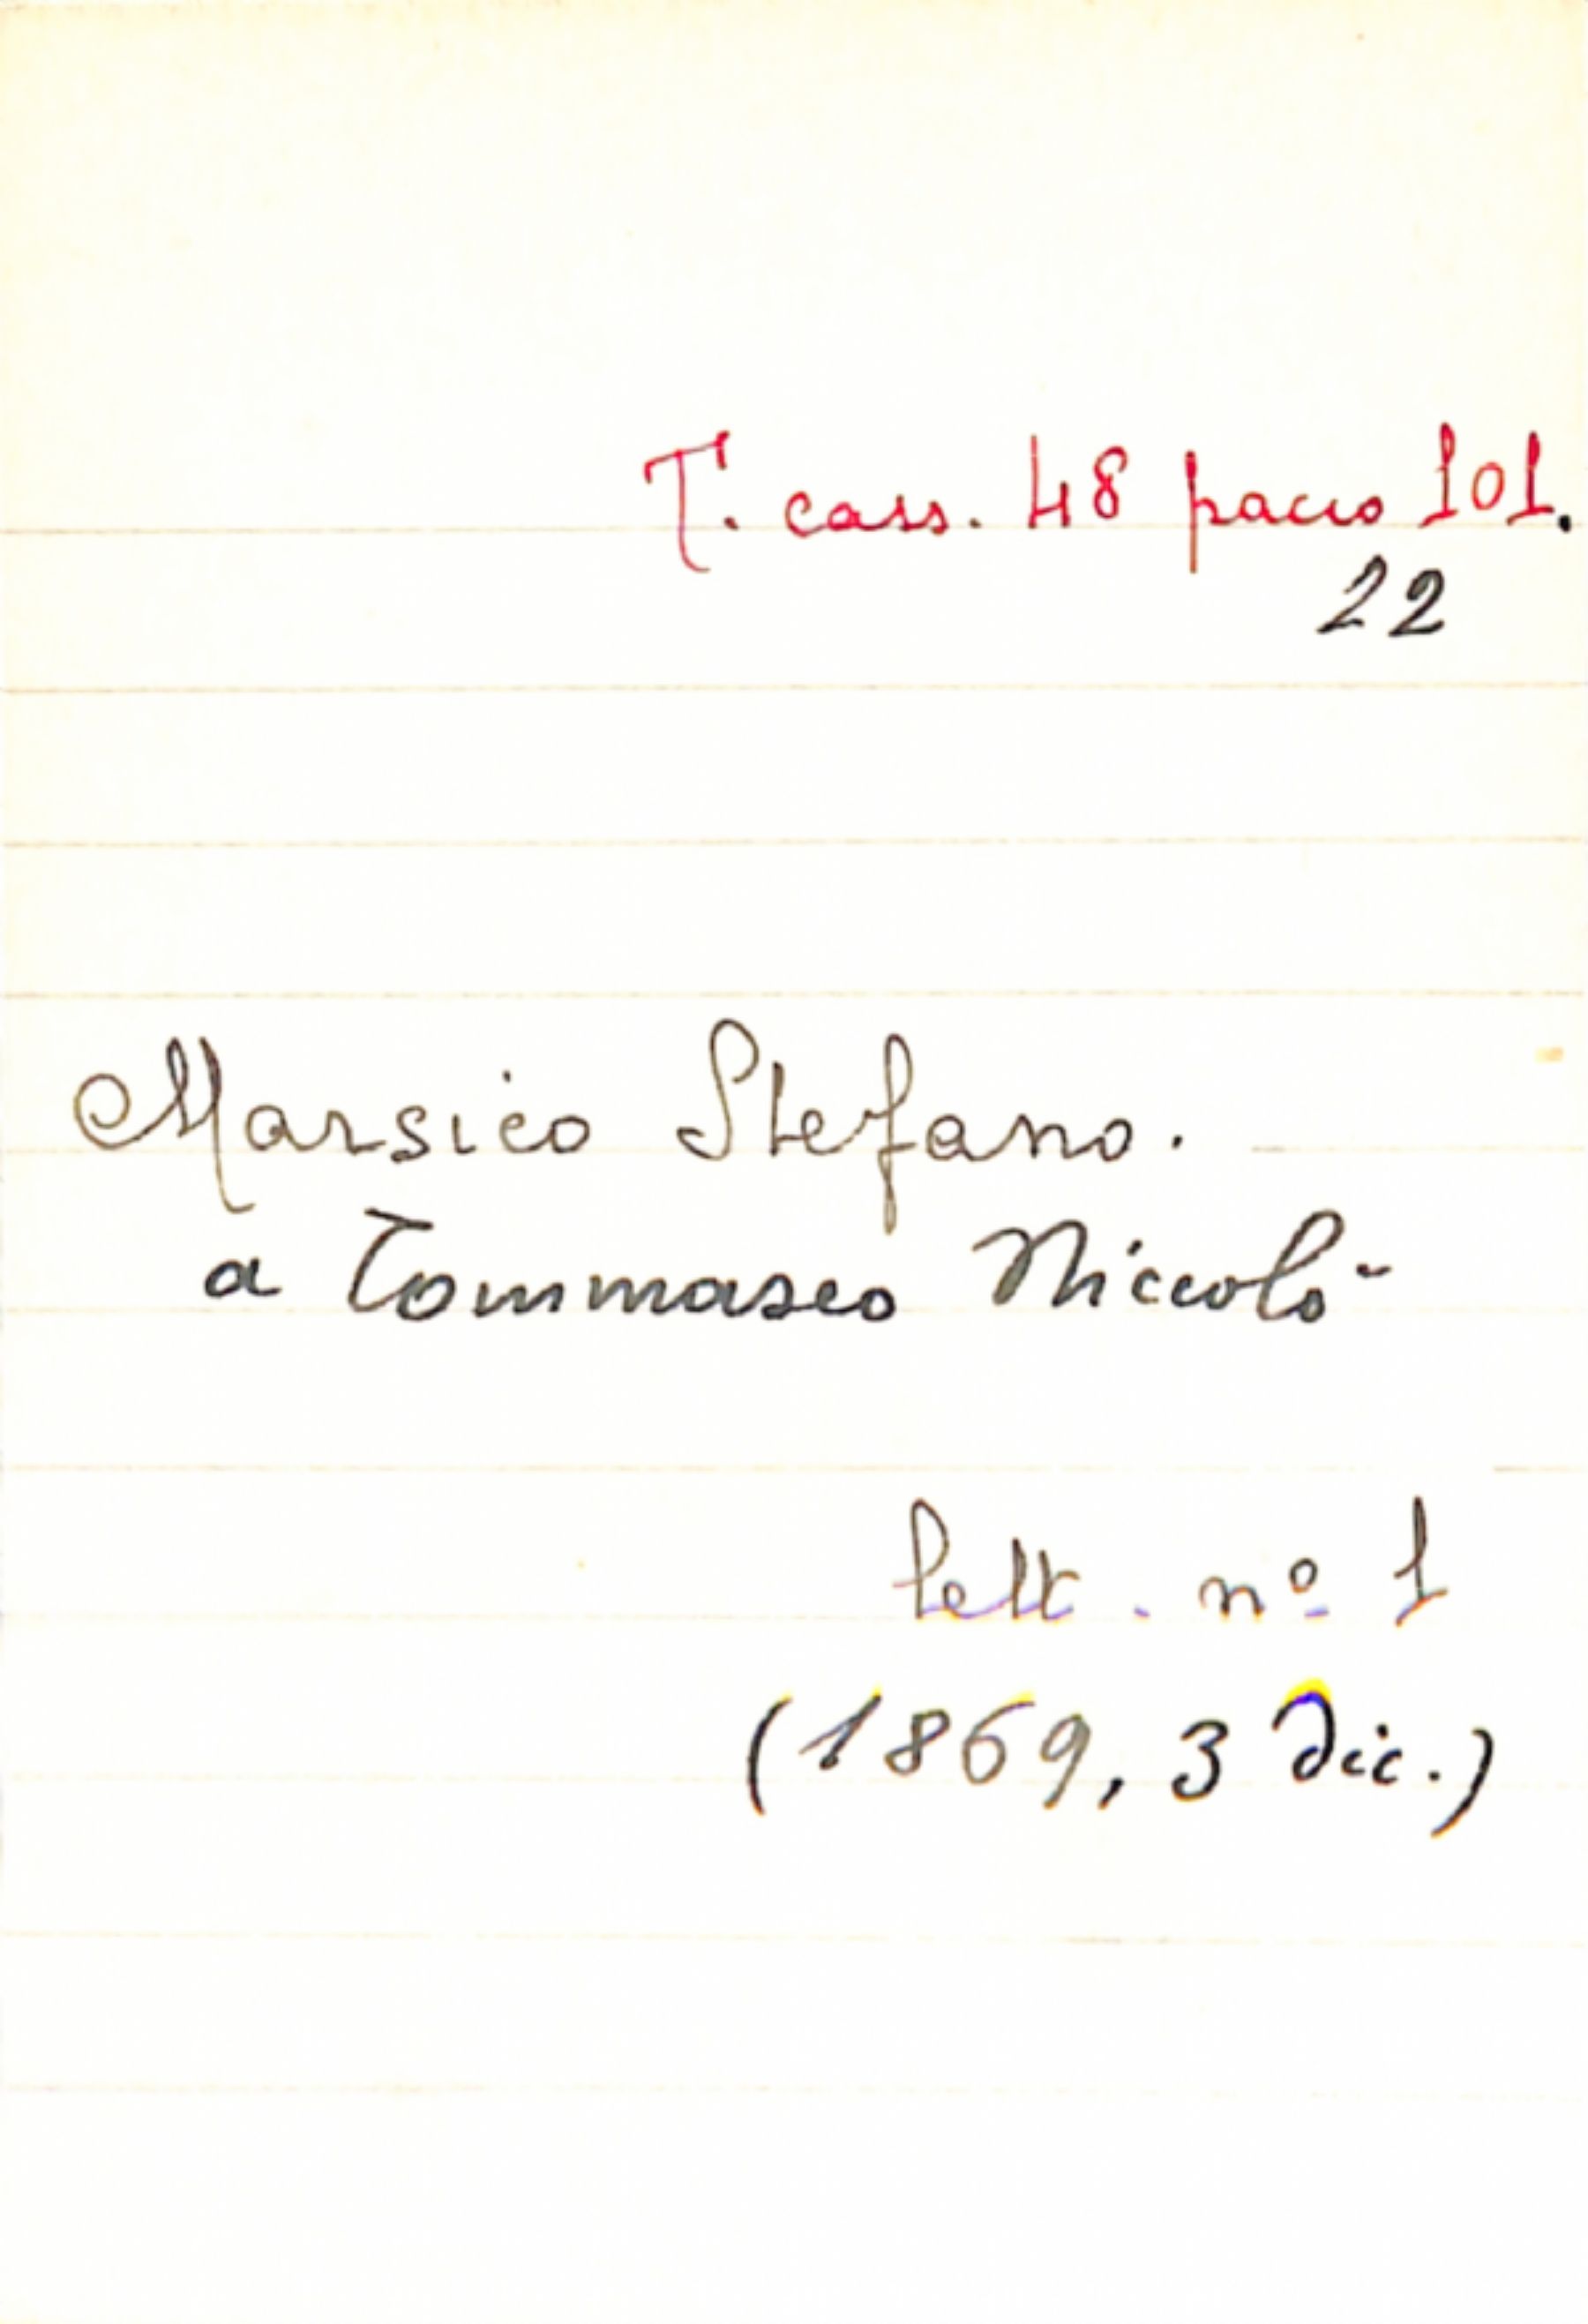 T. cass. 48 pacco 101.
22
Marsico Stefano.
a Tommaseo Niccolò
lett. nº 1
(1869, 3 dic.)